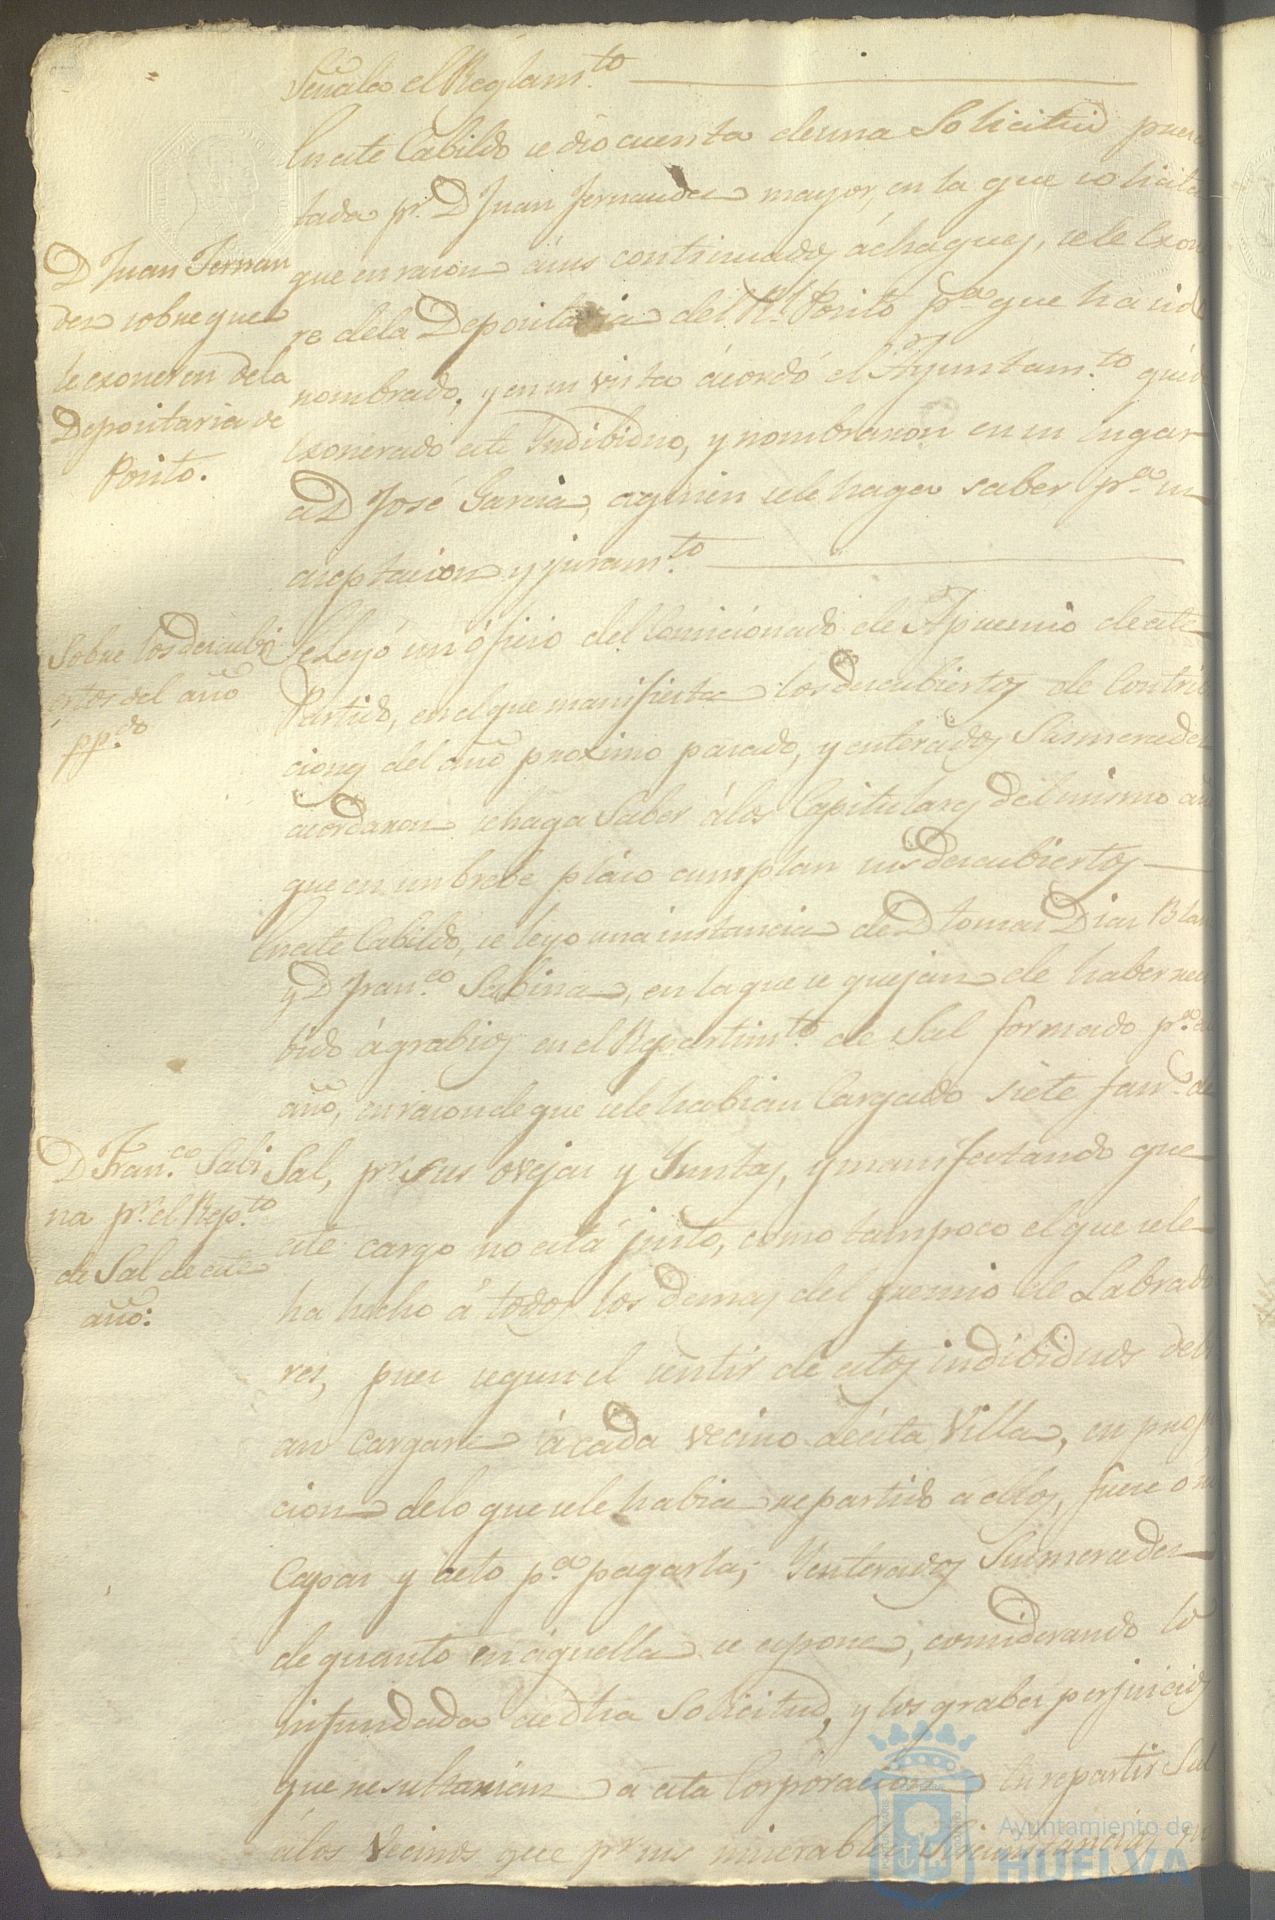 Señala el Reglam.to
En este Cabildo se dio cuenta de una Solicitud presen
tada pr. D Juan Fernandez mayor, en la que solicita
que en razon á sus continuados áchaques, se le Exone
re de la Depositaria del Rl. Posito pa. que ha sido
nombrado, y en su vista ácordó el Ayuntam.to
Exonerado este Indibiduo, y nombraron en su lugar
a D Jose Garcia, aquien se le haga saber pa. su
aceptacion y juram.to
D Juan Fernan
dez sobre que
le exoneren dela
Depositaria de
Posito.
Se Leyó un óficio del Comicionado de Apremio de este
Partido, en el que manifiesta los descubiertos de Contribu
ciones del año proximo pasado, y enterados Sus mercedes
acordaron se haga Saber álos Capitulares del mismo año
que en un brebe plázo cumplan sus descubiertos
Sobre los descubi
ertos del año
pp.do
En este Cabildo, se leyo una instancia de D tomas Dias Blan
y D Fran.co Sabina, en la que se quejan de haber reci
bido ágrabios en el Repartim.to de Sal formado pa. este
año, en razon de que se le habian Cargado siete fan.s de
Sal, pr. sus ovejas y Yuntas, y manifestando que
este cargo no está justo, como tampoco el que se le
ha hecho á todos los demas del gremio de Labrado
res, pues segun el sentir de estos indibiduos debi
an cargarse ácada vecino deésta Villa, en propor
cion delo que se le habia repartido a ellos, fuese o no
Capas y acto pa. pagarla; Yenterados Sus mercedes
de quanto en áquella se espone, considerando lo
infundada de dha Solicitud, y los grabes perjuicios
que resultarian á esta Corporacion en repartir Sal
álos Vecinos que pr. sus miserables Sircunstancias no
D Fran.co Sabi
na pr. el Rep.to
de Sal de este
año:
Ayuntamiento de
HUELVA